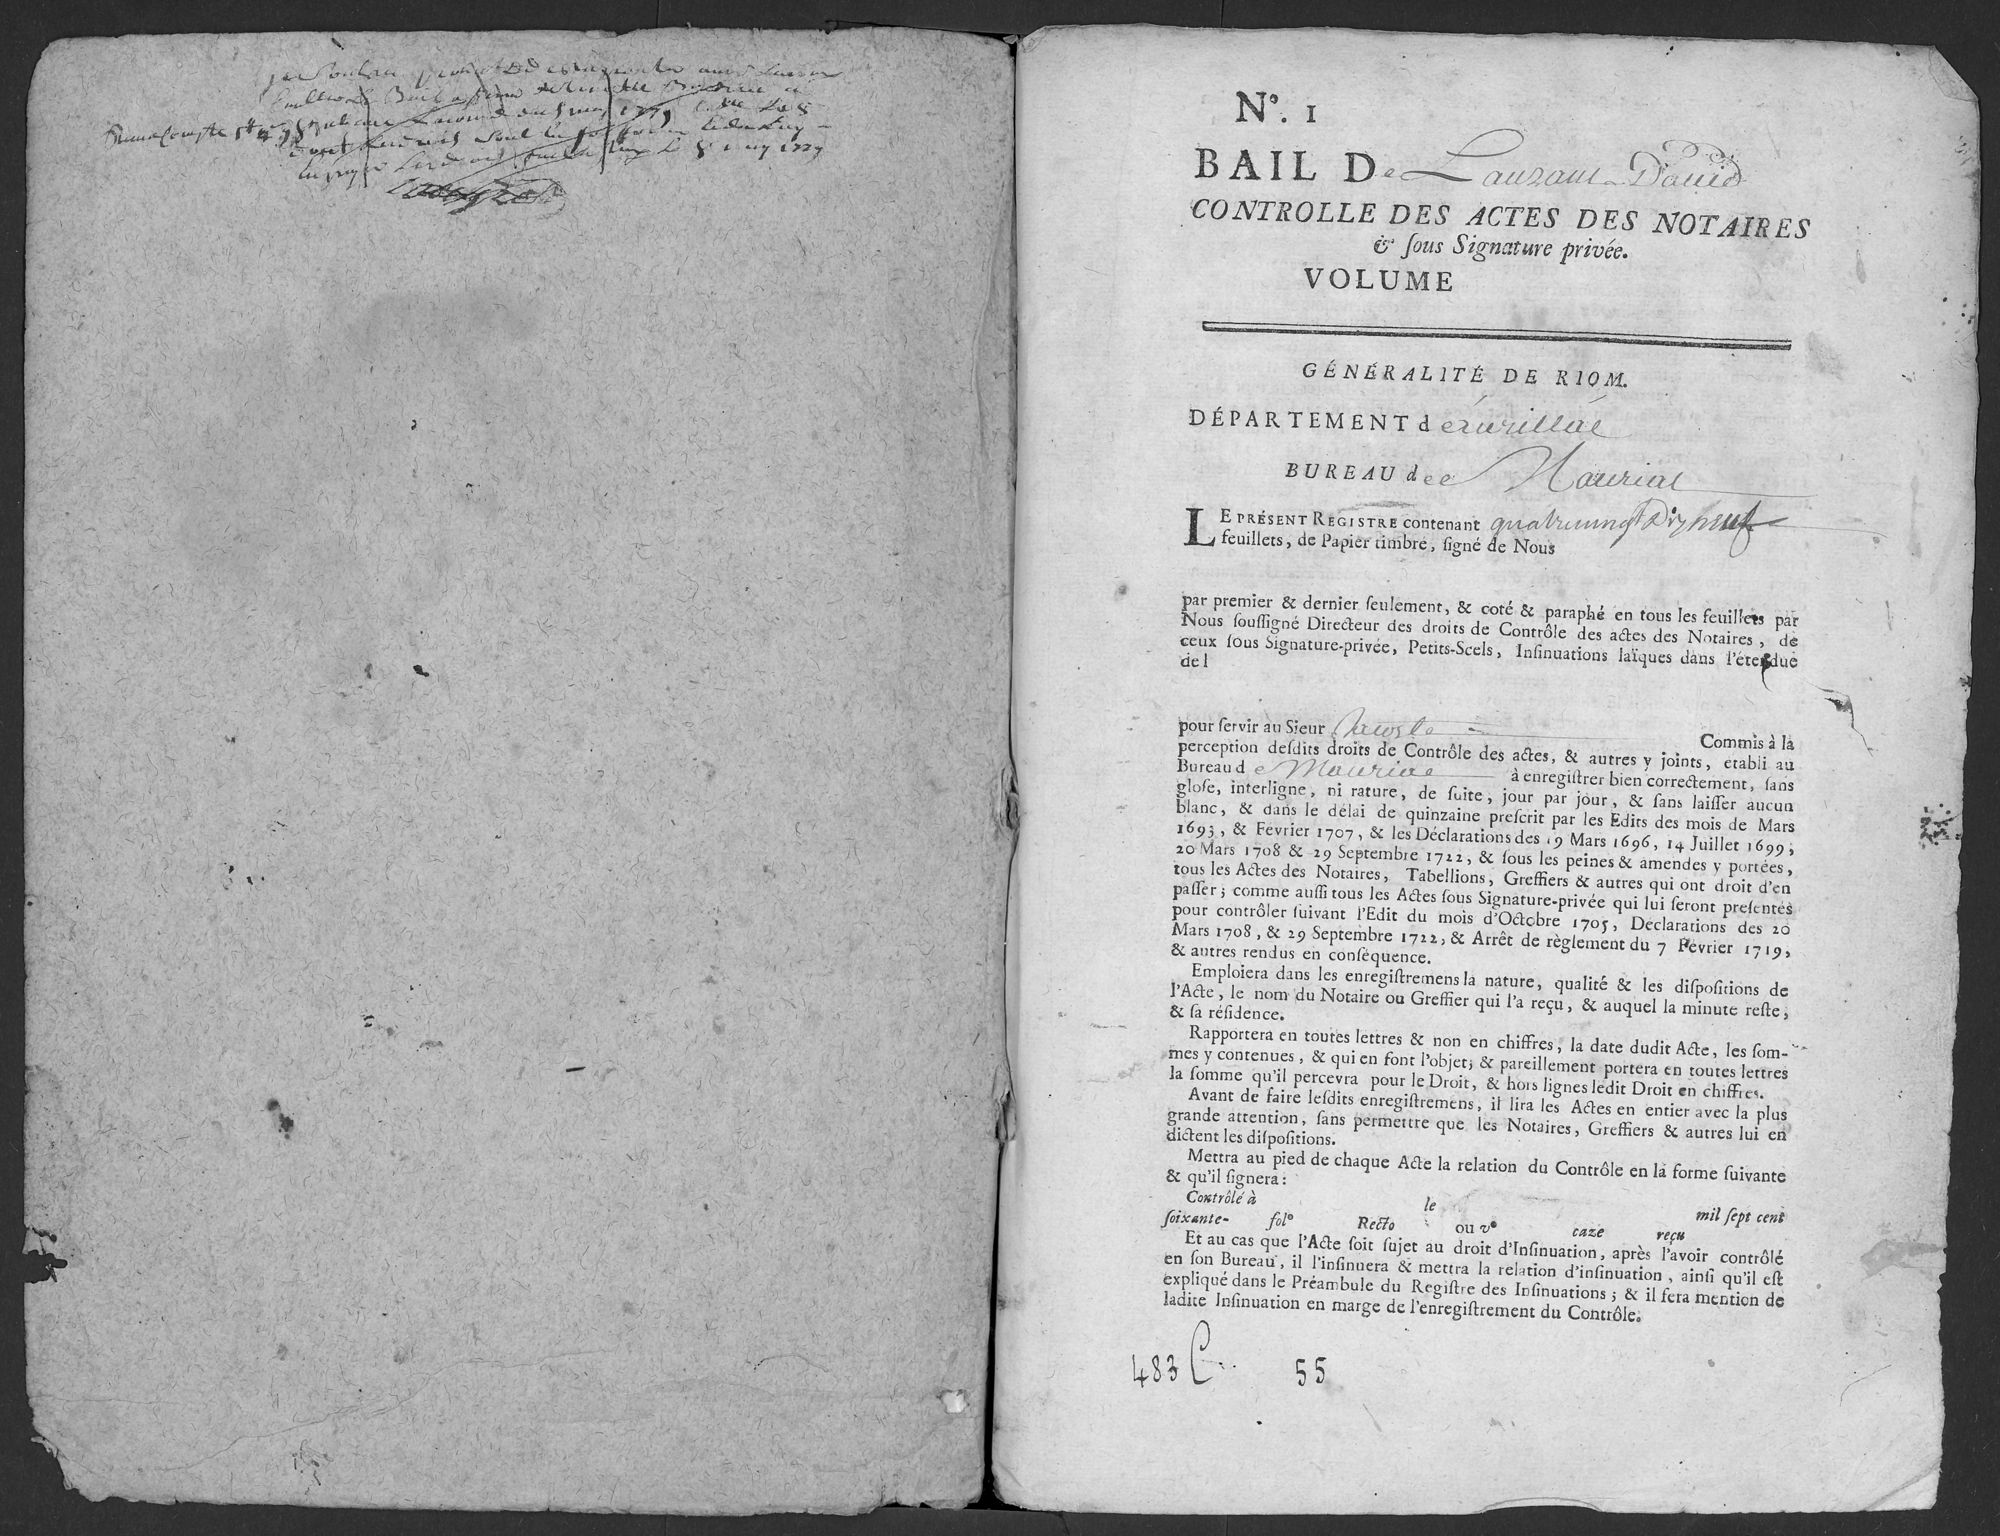 1779
N°. 1
BAIL De Lauzant David
CONTROLLE DES ACTES DES NOTAIRES
& ſous Signature privée.
VOLUME
GÉNÉRALITÉ DE RIOM.
DÉPARTEMENT d
BUREAU de Mauriac
LE PRÉSENT REGISTRE contenant quatrevingt Dixneuf
feuillets, de Papier timbré, ſigné de Nous
par premier & dernier ſeulement, & coté & paraphé en tous les feuillets par
Nous ſouſſigné Directeur des droits de Contrôle des actes des Notaires, de
ceux ſous Signature-privée, Petits-Scels, Inſinuations laïques dans l'étendue
de l
pour ſervir au Sieur Commis à la
perception deſdits droits de Contrôle des actes, & autres y joints, établi au
Bureau de Mauriac à enregiſtrer bien correctement, ſans
gloſe, interligne, ni rature, de ſuite, jour par jour, & ſans laiſſer aucun
blanc, & dans le délai de quinzaine preſcrit par les Edits des mois de Mars
1693, & Février 1707, & les Déclarations des 19 Mars 1696, 14 Juillet 1699,
20 Mars 1708 & 29 Septembre 1722, & ſous les peines & amendes y portées,
tous les Actes des Notaires, Tabellions, Greffiers & autres qui ont droit d'en
paſſer; comme auſſi tous les Actes ſous Signature-privée qui lui ſeront preſentés
pour contrôler ſuivant l'Edit du mois d'Octobre 1705, Déclarations des 20
Mars 1708, & 29 Septembre 1722, & Arrêt de règlement du 7 Février 1719,
& autres rendus en conſéquence.
Emploiera dans les enregiſtremens la nature, qualité & les diſpoſitions de
l'Acte, le nom du Notaire ou Greffier qui l'a reçu, & auquel la minute reſte,
& ſa réſidence.
Rapportera en toutes lettres & non en chiffres, la date dudit Acte, les ſom-
mes y contenues, & qui en font l'objet; & pareillement portera en toutes lettres
la ſomme qu'il percevra pour le Droit, & hors lignes ledit Droit en chiffres.
Avant de faire leſdits enregiſtremens, il lira les Actes en entier avec la plus
grande attention, ſans permettre que les Notaires, Greffiers & autres lui en
dictent les diſpoſitions.
Mettra au pied de chaque Acte la relation du Contrôle en la forme ſuivante
& qu'il ſignera:
Contrôlé à le mil ſept cent
ſoixante- fol° Recto ou v° caze reçu
Et au cas que l'Acte ſoit ſujet au droit d'Inſinuation, après l'avoir contrôlé
en ſon Bureau, il l'inſinuera & mettra la relation d'inſinuation, ainſi qu'il eſt
expliqué dans le Préambule du Regiſtre des Inſinuations; & il ſera mention de
ladite Inſinuation en marge de l'enregiſtrement du Contrôle.
483 C 55